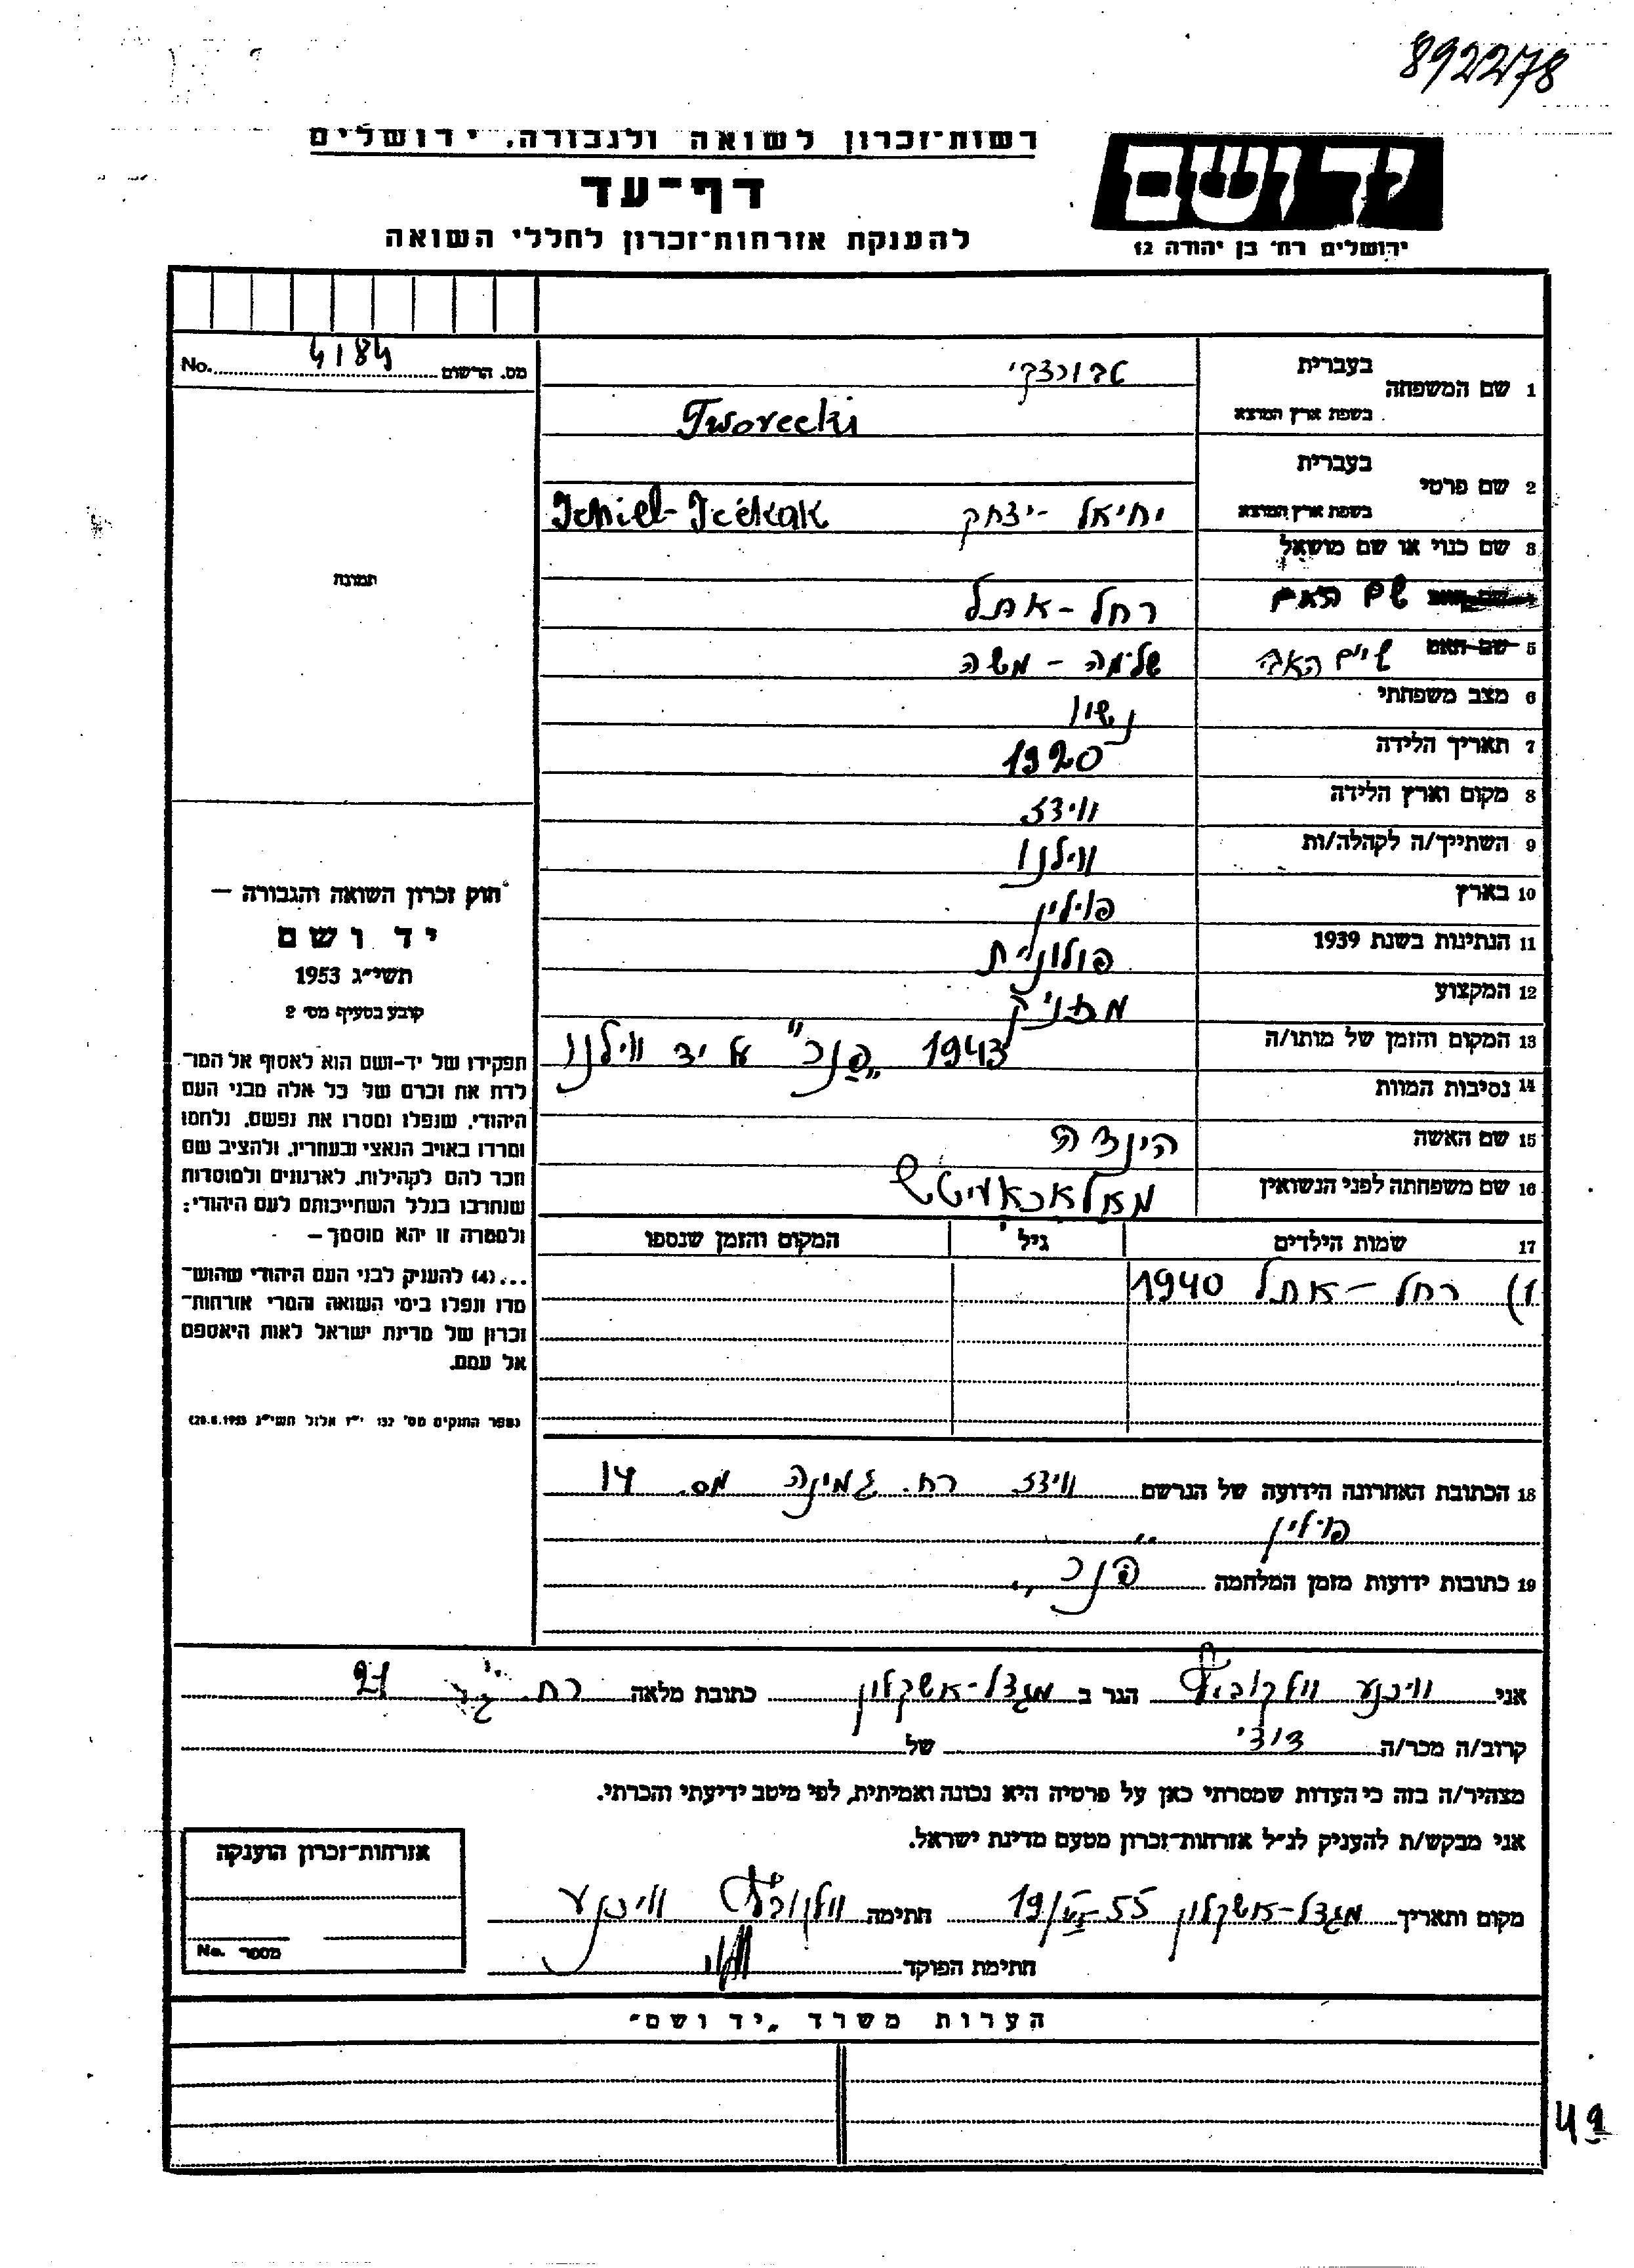 892278
רשות־זכרון לשואה ולגבורה, ירושלים
יד ושם
דף־עד
להענקת אזרחות־זכרון לחללי השואה
ירושלים רח׳ בן יהודה 12
No. 4184 מס. הרשום
1 שם המשפחה
בעברית טבורצקי
בשפת ארץ המוצא Tworecki
2 שם פרטי
בעברית
בשפת ארץ המוצא יחיאל - יצחק Ichiel-Ickak
3 שם כנוי או שם מושאל
שם האם רחל - אתל
5 שם האם שם האב שלמה - משה
6 מצב משפחתי נשוי
7 תאריך הלידה 1920
8 מקום וארץ הלידה ווידז
9 השתייך/ה לקהלה/ות ווילנו
10 בארץ פולין
11 הנתינות בשנת 1939 פולונית
12 המקצוע
13 המקום והזמן של מותו/ה 1943 „פנר" על יד ווילנו
14 נסיבות המוות
15 שם האשה הינדה
16 שם משפחתה לפני הנשואין
17 שמות הילדים גיל המקום והזמן שנספו
1) רחל - אתל 1940
תמונה
חוק זכרון השואה והגבורה —
יד ושם
תשי״ג 1953
קובע בסעיף מס׳ 2
תפקידו של יד-ושם הוא לאסוף אל המו־
לדת את זכרם של כל אלה מבני העם
היהודי, שנפלו ומסרו את נפשם, נלחמו
ומרדו באויב הנאצי ובעוזריו, ולהציב שם
וזכר להם לקהילות, לארגונים ולמוסדות
שנחרבו בגלל השתייכותם לעם היהודי;
ולמטרה זו יהא מוסמך—
...(4) להענקיק לבני העם היהודי שהוש־
מדו ונפלו בימי השואה והמרי אזרחות־
זכרון של מדינת ישראל לאות היאספם
אל עמם.
(ספר החוקים מס׳ 132 י״ז אלול תשי״ג 28.8.1953)
18 הכתובת האחרונה הידועה של הנרשם ווידז רח. גמינה מס. 14
פולין
19 כתובות ידועות מזמן המלחמה פנר
אני הגר ב מגדל-אשקלון כתובת מלאה רח. 21
קרוב/ה מכר/ה דודי של
מצהיר/ה בזה כי העדות שמסרתי כאן על פרטיה היא נכונה ואמיתית, לפי מיטב ידיעתי והכרתי.
אני מבקש/ת להעניק לנ״ל אזרחות־זכרון מטעם מדינת ישראל.
מקום ותאריך מגדל-אשקלון חתימה
חתימת הפוקד
אזרחות־זכרון הוענקה
No. מספר
הערות משרד „יד ושם"
49